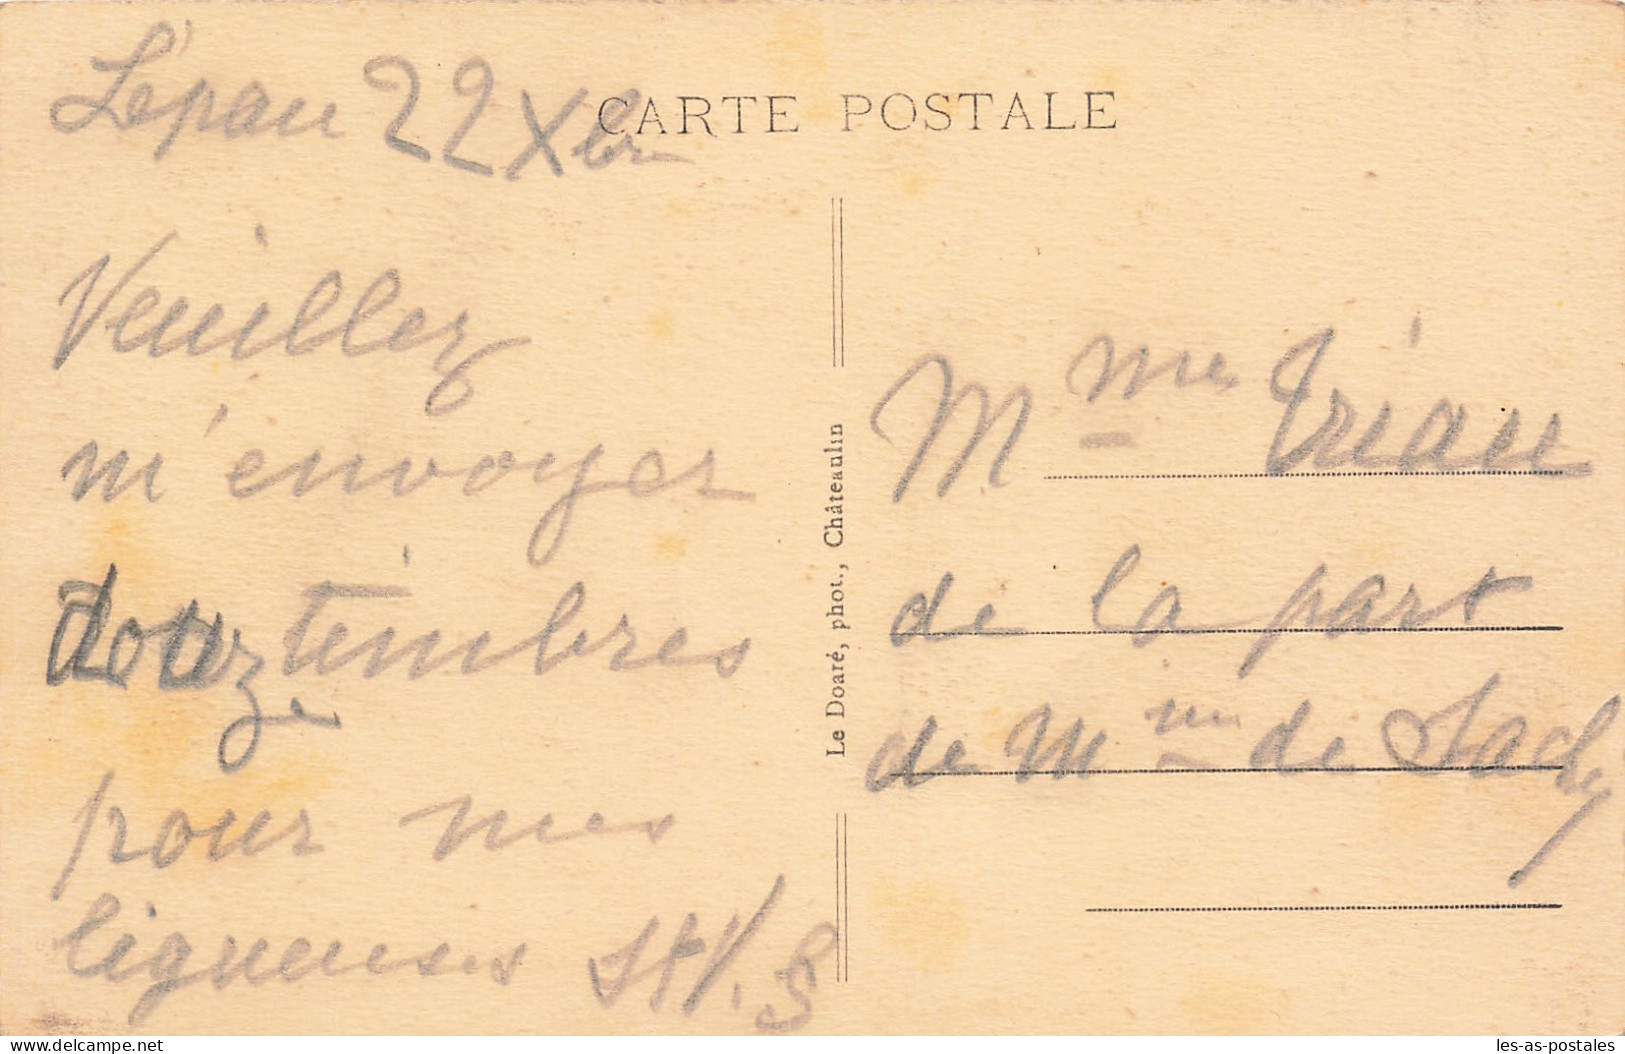 Lépau 22 Xbre
CARTE POSTALE
Veuillez
m'envoyer
douze timbres
pour mes
ligueuses
Le Doaré, phot., Châteaulin
Mme Triau
de la part
de Mme de Sachy
delcampe.net
les-as-postales